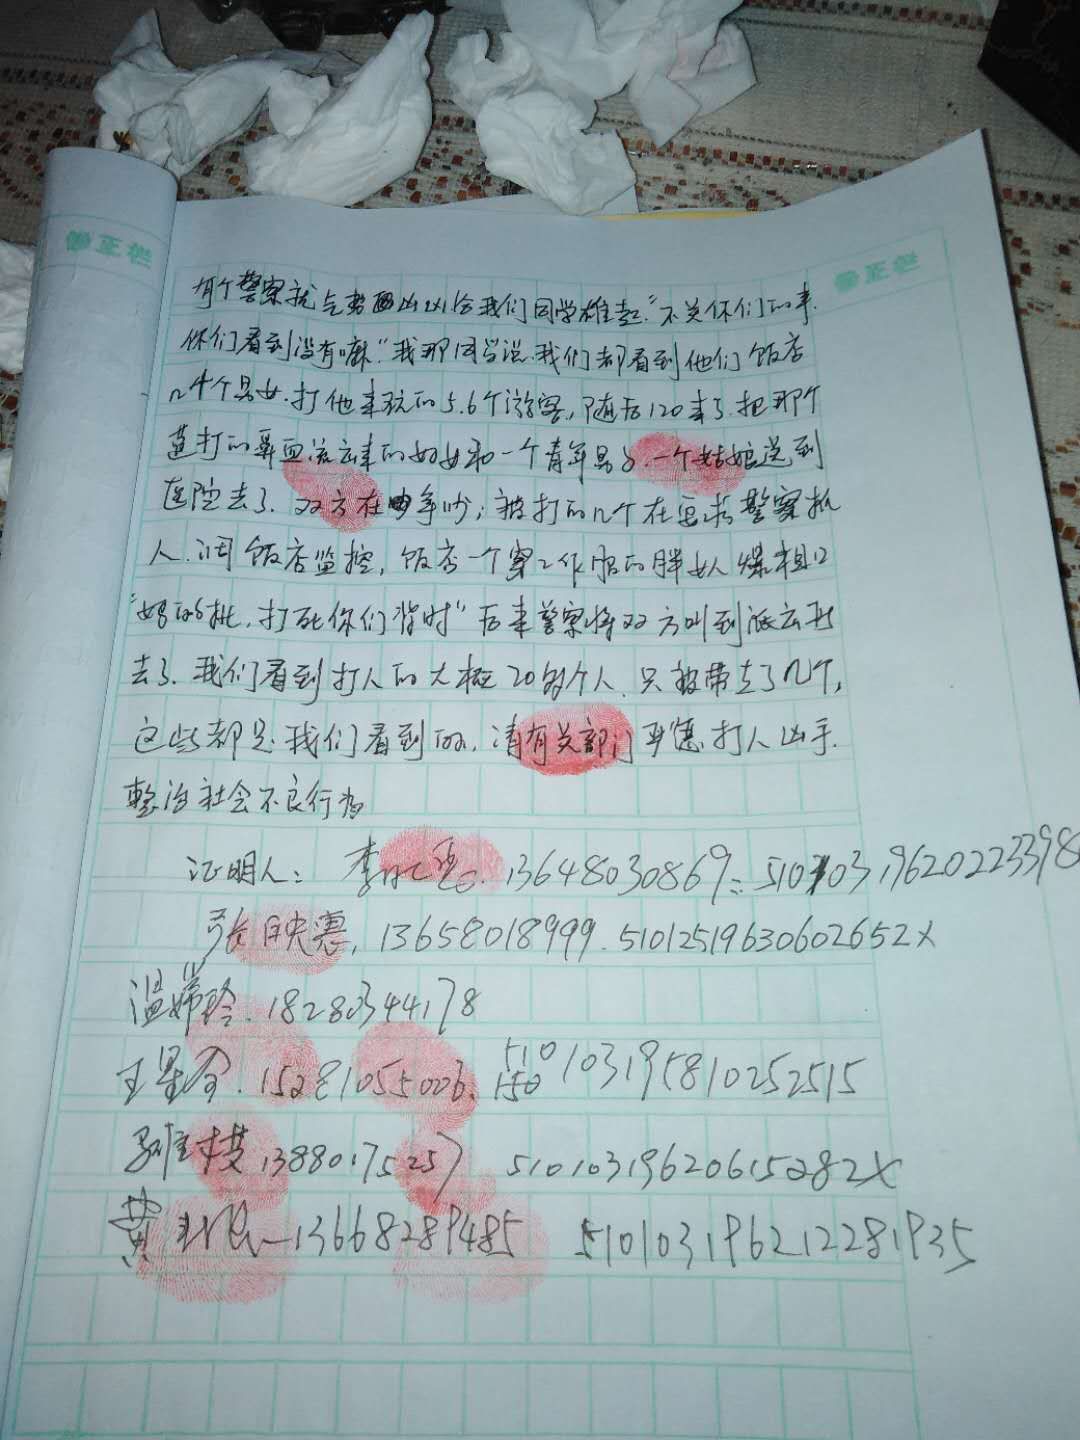 修正栏
修正栏
有个警察就气势西凶凶给我们同学雄起"不关你们的事.
你们看到没有嘛"我那同学说.我们都看到他们饭店
几个男女.打他来玩的5.6个游客,随后120来了.把那个
打的鼻血流出来的妇女和一个青年男子.一个姑娘送到
医院去了.双方在争吵;被打的几个在要求警察抓
人.调饭店监控,饭店一个穿工作服的胖女人爆粗口
"妈的批,打死你们背时"后来警察将双方叫到派出所
去了.我们看到打人的大概20多个人.只被带走了几个,
这些都是我们看到的.请有关部门严惩打人凶手.
整治社会不良行为
证明人:李 13648030869 51010319620223398
张映惠,13658018999.51012519630602652X
温婷玲.18280344178
王星 .15281055006. 510103195810252515
13880175257 51010319620615282X
黄 13668289485 510103196212281935